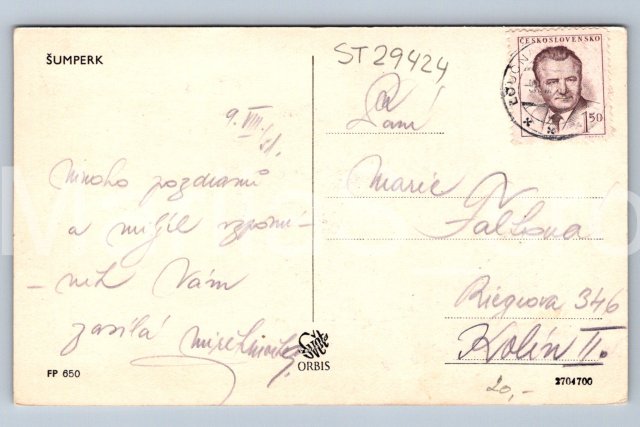 ŠUMPERK
ST 29424
ČESKOSLOVENSKO
1.50
9. VIII.
Paní
Marie
Mnoho pozdravů
a milých vzpomí-
Faltova
- nek Vám
Riegrova 346
zasílá Mirek
Kolín II.
Svět
ORBIS
FP 650
20,-
2704700